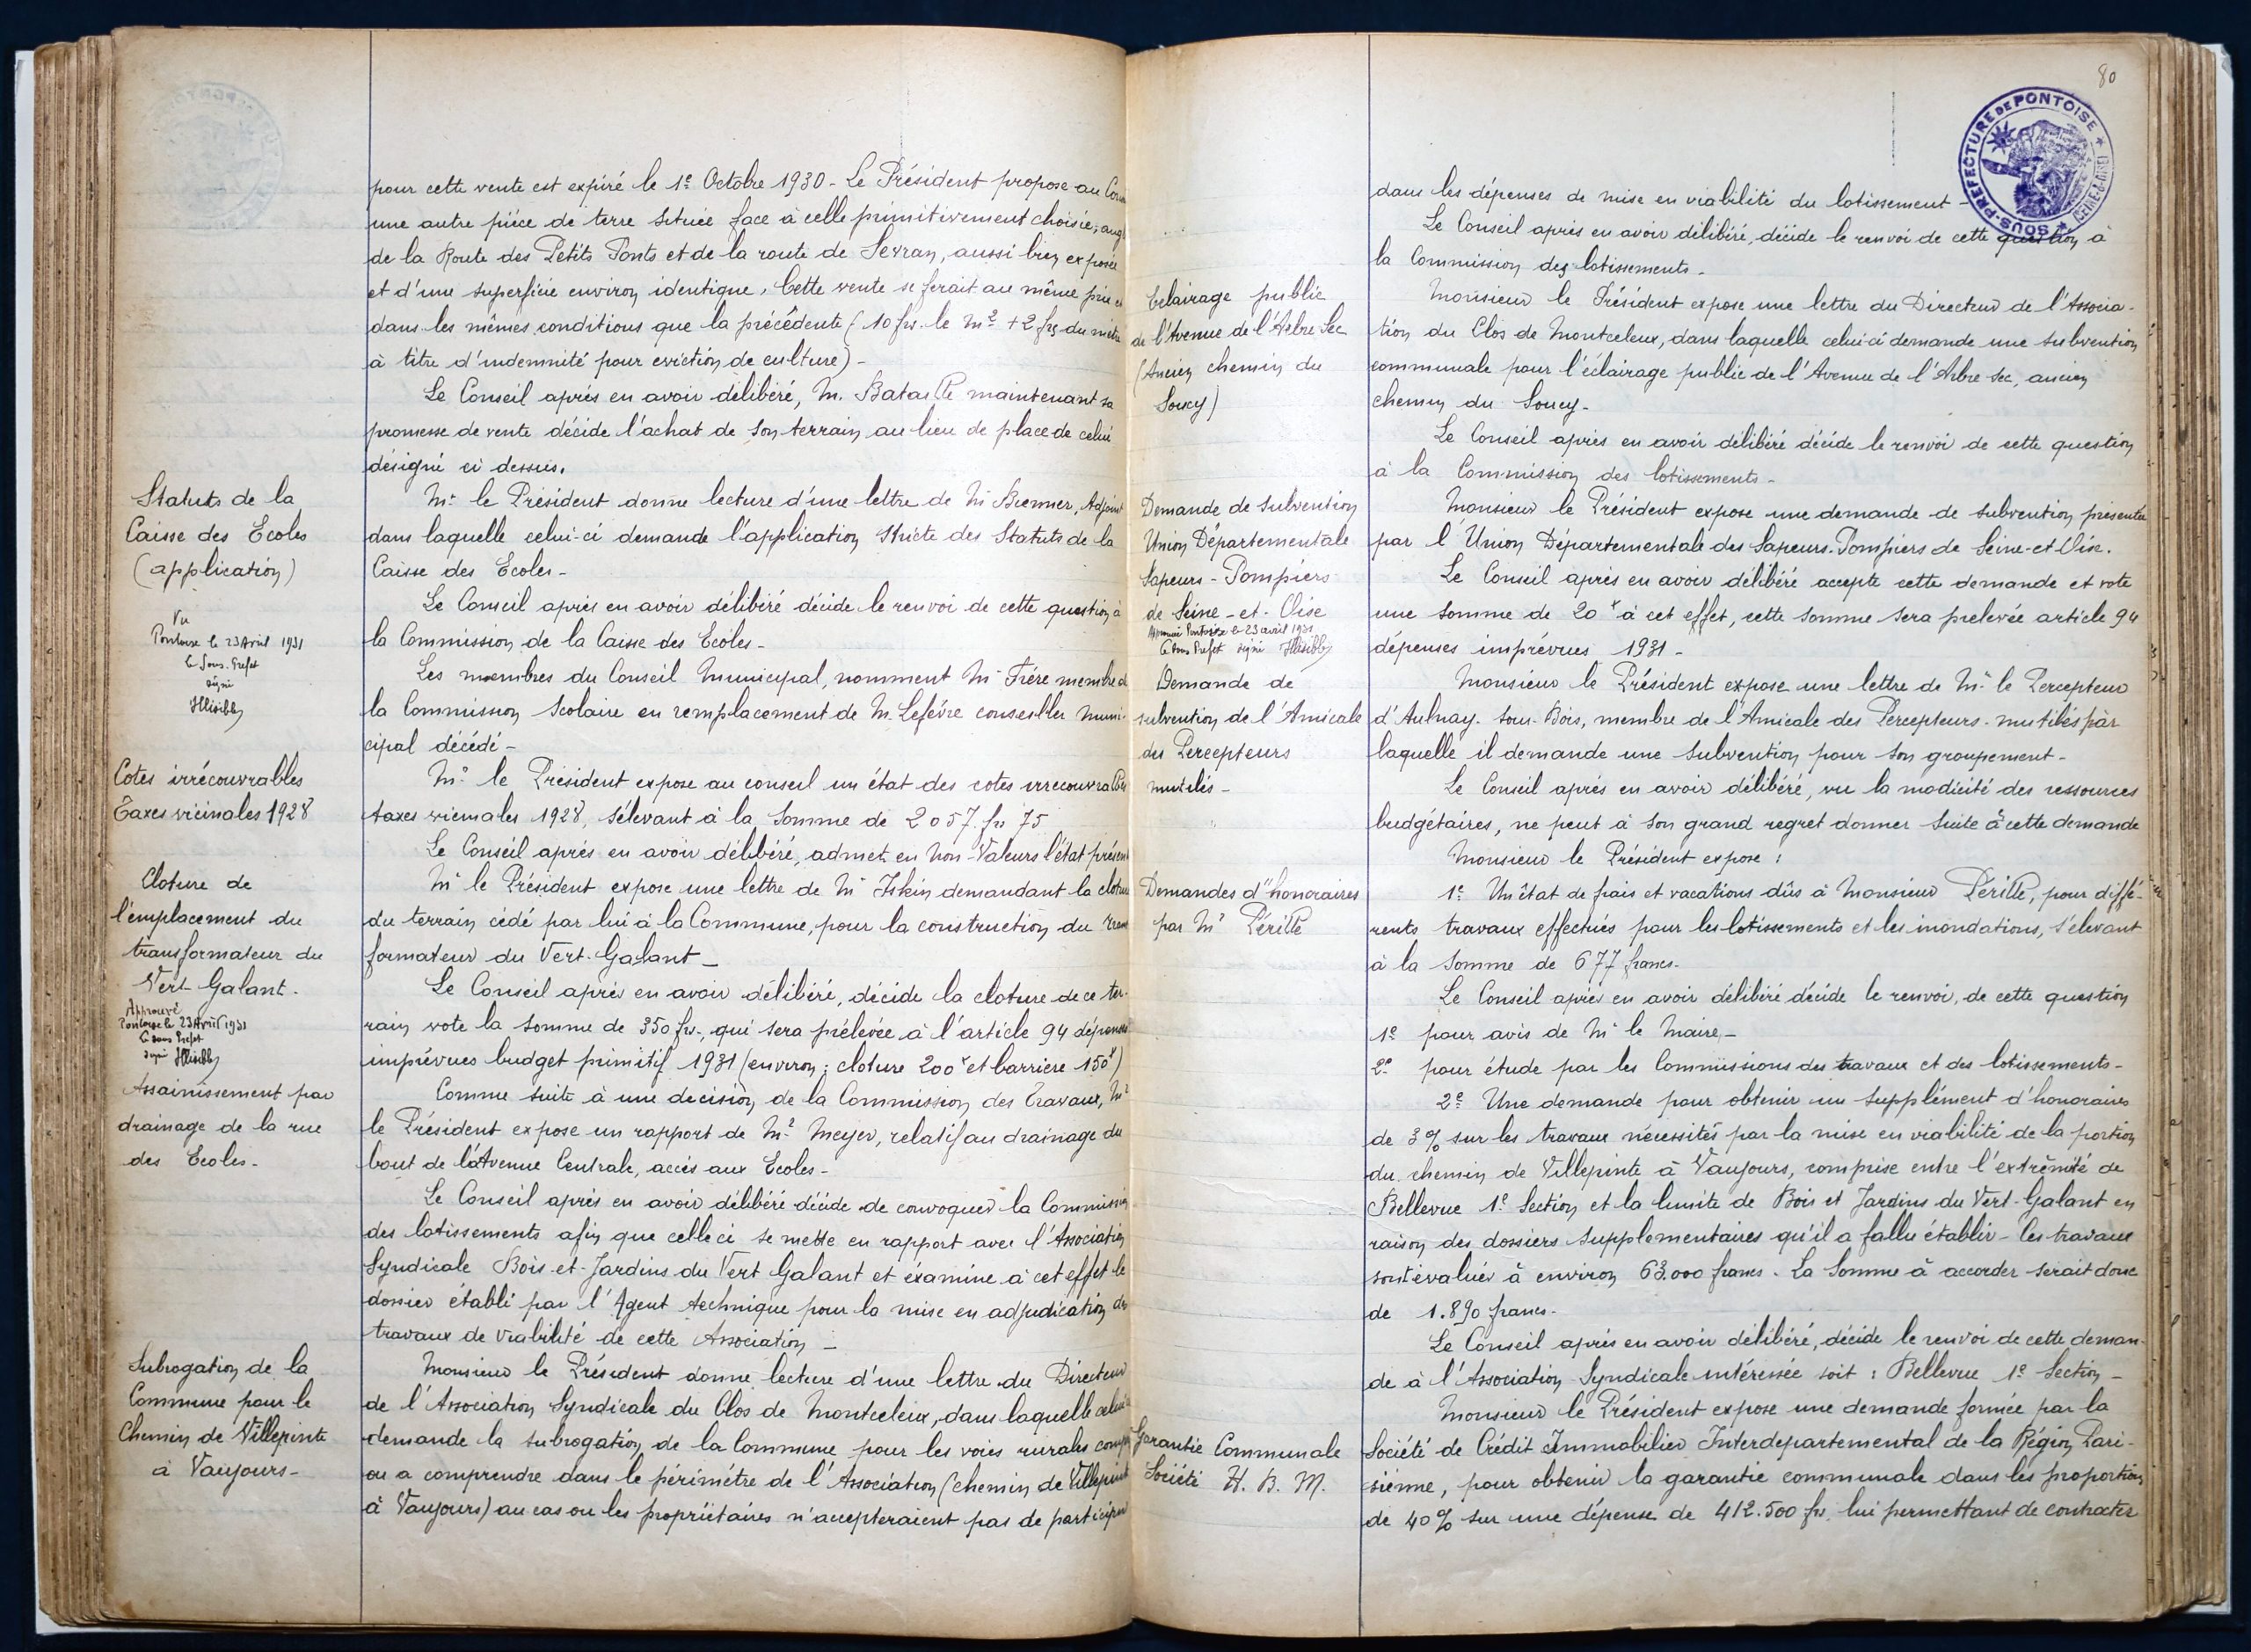 pour cette vente est expiré le 1º Octobre 1930 - Le Président propose au
une autre pièce de terre située face à celle primitivement choisie;
de la Route des Petits Ponts et de la route de Sevran, aussi bien exposée
et d'une superficie environ identique, Cette vente se ferait au même prix et
dans les mêmes conditions que la précédente (10 frs. le m² + 2 frs du mètre
à titre d'indemnité pour éviction de culture) -
Le Conseil après en avoir délibéré, M. Bataille maintenant sa
promesse de vente décide l'achat de son terrain au lieu de place de celui
désigné ci dessus.
Statuts de la
Caisse des Ecoles
(application)
Vu
Pontoise le 23 Avril 1931
le Sous-Prefet
signé
Illisible
Mr le Président donne lecture d'une lettre de Mr Brenner, Adjoint
dans laquelle celui-ci demande l'application stricte des Statuts de la
Caisse des Ecoles -
Le Conseil après en avoir délibéré décide le renvoi de cette question à
la Commission de la Caisse des Ecoles -
Les membres du Conseil Municipal, nomment Mr Frère membre de
la Commission Scolaire en remplacement de M. Lefèvre conseiller muni-
cipal décédé -
Cotes irrécouvrables
Taxes vicinales 1928
Mr le Président expose au conseil un état des cotes irrecouvrables
taxes vicinales 1928, s'élevant à la somme de 2057 frs 75
Le Conseil après en avoir délibéré, admet en Non-Valeurs l'état
Cloture de
l'emplacement du
transformateur du
Vert Galant.
Approuvé
Pontoise le 23 Avril 1931
le Sous Prefet
signé Illisible
Mr le Président expose une lettre de Mr Iskin demandant la cloture
du terrain cédé par lui à la Commune, pour la construction du
formateur du Vert-Galant -
Le Conseil après en avoir délibéré, décide la cloture de ce ter-
rain vote la somme de 350 frs., qui sera prélevée à l'article 94 dépenses
imprévues budget primitif 1931 (environ; cloture 200f et barrière 150f)
Assainissement par
drainage de la rue
des Ecoles -
Comme suite à une decision de la Commission des Travaux, Mr
le Président expose un rapport de Mr Meyer, relatif au drainage du
bout de l'Avenue Centrale, accès aux Ecoles -
Le Conseil après en avoir délibéré décide de convoquer la Commission
des lotissements afin que celle ci se mette en rapport avec l'Association
Syndicale Bois-et-Jardins du Vert Galant et éxamine à cet effet le
dossier établi par l'Agent technique pour la mise en adjudication des
travaux de viabilité de cette Association -
Subrogation de la
Commune pour le
Chemin de Villepinte
à Vaujours -
Monsieur le Président donne lecture d'une lettre du Directeur
de l'Association Syndicale du Clos de Montceleux, dans laquelle celui-ci
demande la subrogation de la Commune pour les voies rurales
ou a comprendre dans le périmètre de l'Association (chemin de Villepinte
à Vaujours) au cas ou les propriétaires n'accepteraient pas de participer
80
SOUS-PREFECTURE DE PONTOISE
dans les dépenses de mise en viabilité du lotissement -
Le Conseil après en avoir délibéré, décide le renvoi de cette question à
la Commission des lotissements.
Eclairage public
de l'Avenue de l'Arbre Sec
(Ancien chemin du
Soucy)
Monsieur le Président expose une lettre du Directeur de l'Associa-
tion du Clos de Montceleux, dans laquelle celui-ci demande une subvention
communale pour l'éclairage public de l'Avenue de l'Arbre-Sec, ancien
chemin du Soucy.
Le Conseil après en avoir délibéré décide le renvoi de cette question
à la Commission des lotissements -
Demande de Subvention
Union Départementale
Sapeurs-Pompiers
de Seine-et-Oise
Approuvé Pontoise le 23 avril 1931
Le Sous Prefet signé Illisible
Monsieur le Président expose une demande de subvention présentée
par l'Union Départementale des Sapeurs-Pompiers de Seine-et-Oise.
Le Conseil après en avoir délibéré accepte cette demande et vote
une somme de 20f à cet effet, cette somme sera prelevée article 94
dépenses imprévues 1931 -
Demande de
subvention de l'Amicale
des Percepteurs
mutilés -
Monsieur le Président expose une lettre de Mr le Percepteur
d'Aulnay-sous-Bois, membre de l'Amicale des Percepteurs-mutilés par
laquelle il demande une subvention pour son groupement -
Le Conseil après en avoir délibéré, vu la modicité des ressources
budgétaires, ne peut à son grand regret donner suite à cette demande
Demandes d'honoraires
par Mr Pérille
Monsieur le Président expose :
1º Un état de frais et vacations dûs à Monsieur Pérille, pour diffé-
rents travaux effectués pour les lotissements et les inondations, s'élevant
à la somme de 677 francs.
Le Conseil après en avoir délibéré décide le renvoi, de cette question
1º pour avis de Mr le Maire, -
2º pour étude par les Commissions des travaux et des lotissements -
2º Une demande pour obtenir un supplément d'honoraires
de 3% sur les travaux nécessités par la mise en viabilité de la portion
du chemin de Villepinte à Vaujours, comprise entre l'extrêmité de
Bellevue 1º Section et la limite de Bois et Jardins du Vert-Galant en
raison des dossiers supplementaires qu'il a fallu établir - Ces travaux
sont évalués à environ 63.000 francs. La Somme à accorder serait donc
de 1.890 francs.
Le Conseil après en avoir délibéré, décide le renvoi de cette deman-
de à l'Association Syndicale intéressée soit : Bellevue 1º Section -
Garantie Communale
Société H. B. M.
Monsieur le Président expose une demande formée par la
Société de Crédit Immobilier Interdepartemental de la Région Pari-
sienne, pour obtenir la garantie communale dans les proportions
de 40% sur une dépense de 412.500 frs. lui permettant de contracter